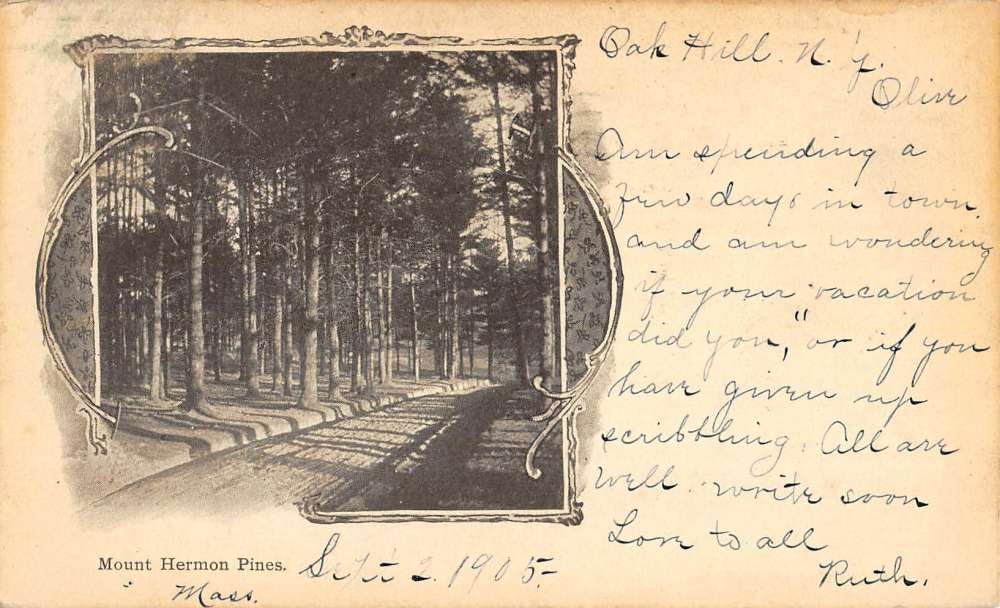 Oak Hill. N. Y.
Olive
Am spending a
few days in town.
and am wondering
if your vacation
did you," or if you
have given up
scribbling. All are
well. write soon
Love to all
Ruth.
Mount Hermon Pines.
Mass.
Sept 2. 1905-